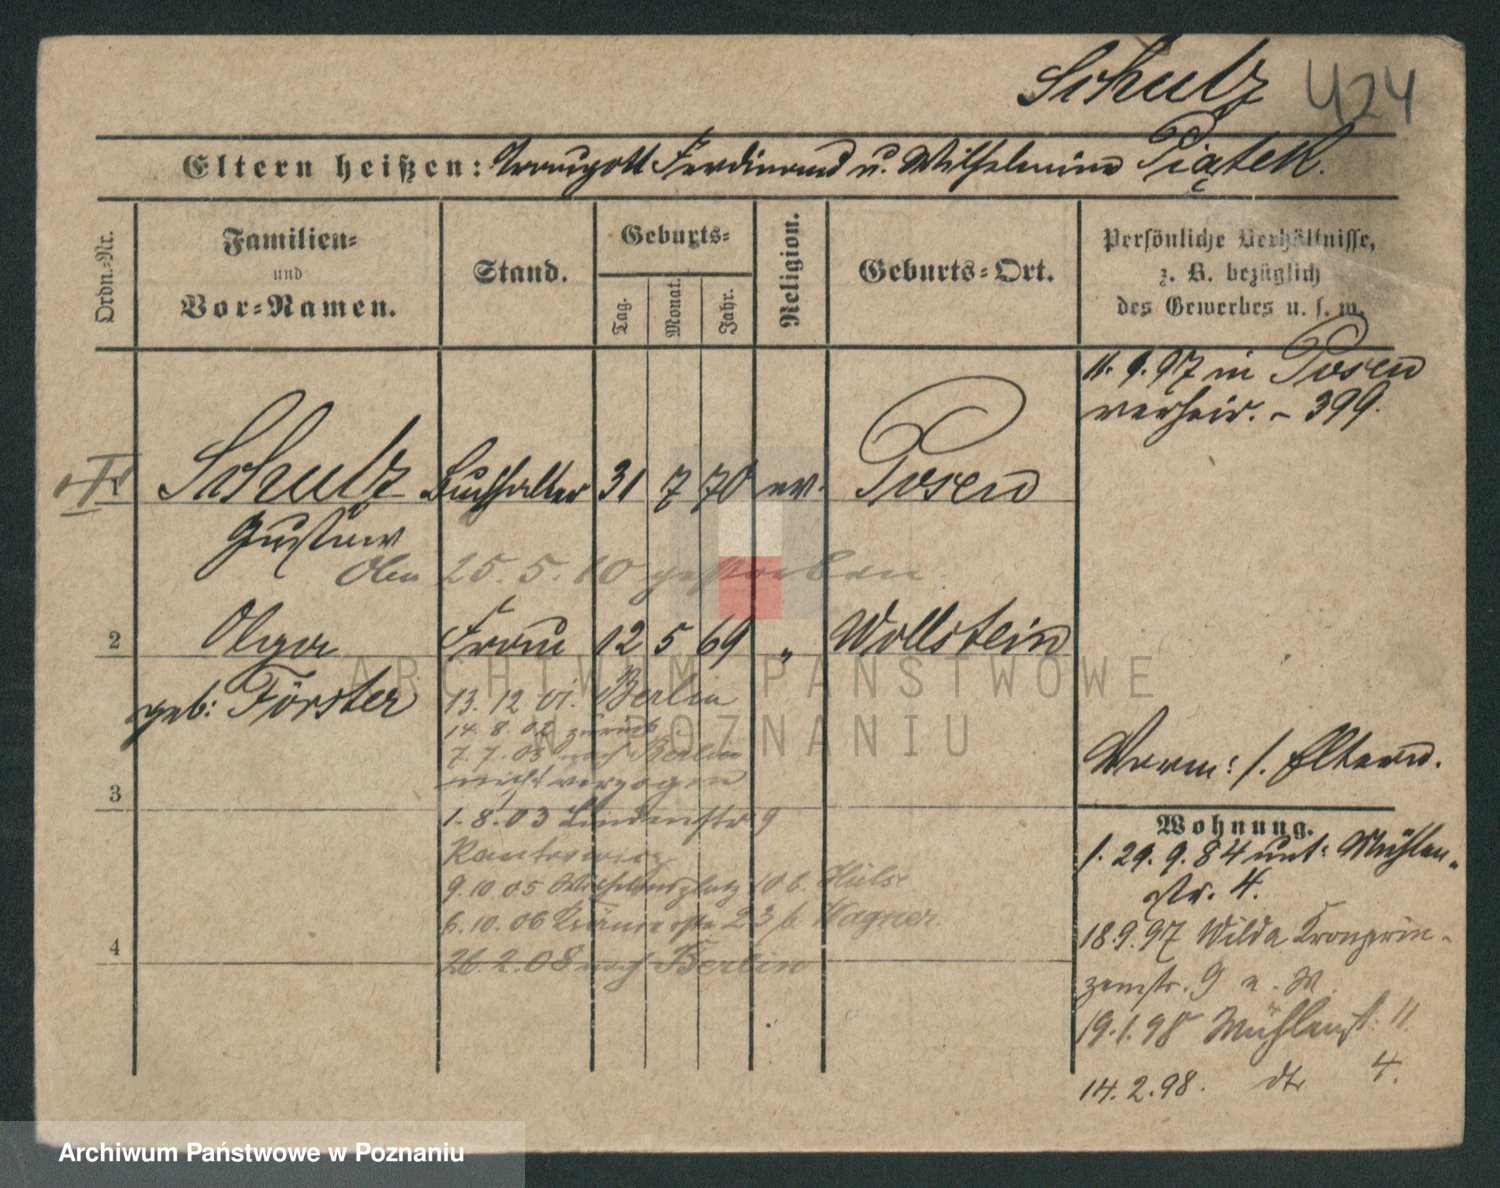 Schulz 424
Eltern heißen: Traugott Ferdinand u. Wilhelmine Piątek.
Ordn.-Nr.
Familien-
und
Vor-Namen.
Stand.
Geburts-
Tag.
Monat.
Jahr.
Religion.
Geburts-Ort.
Persönliche Verhältnisse,
z. B. bezüglich
des Gewerbes u. s. w.
11. 9. 97 in Posen
verheir. - 399.
Schulz Buchhalter 31 7 70 ev. Posen
Gustav
25. 5. 10 gestorben.
2 Olga Frau 12 5 69 " Wollstein
geb: Förster
13. 12 01. Berlin
14. 8. 02 zurück
7. 7. 03 nach Berlin
nicht verzogen
3
1. 8. 03 Lindenstr 9
9. 10 05 Wilhelmsplatz 10 b. Hülse
6. 10. 06 23 b. Wagner
4
26. 2. 08 nach Berlin
Vorm: s. Eltern.
Wohnung.
1. 29. 9. 84 unt: Mühlen-
str. 4.
18 9. 97 Wilda Kronprin-
zenstr. 9
19. 1. 98 Mühlenst. 11
14. 2. 98. dto 4.
ARCHIWUM PAŃSTWOWE
W POZNANIU
Archiwum Państwowe w Poznaniu